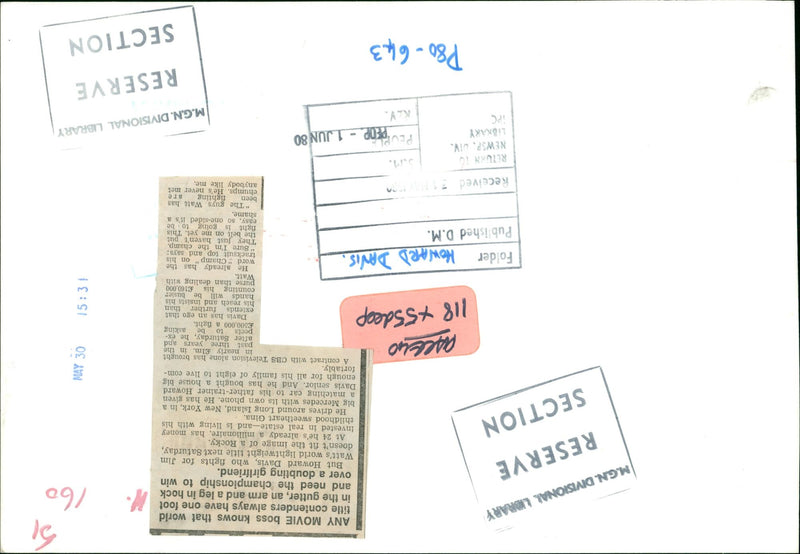 ANY MOVIE boss knows that world
title contenders always have one foot
in the gutter, an arm and a leg in hock
and need the championship to win
over a doubting girlfriend.
But Howard Davis, who fights for Jim
Watt's world lightweight title next Saturday,
doesn't fit the image of a Rocky.
At 24 he's already a millionaire, has money
invested in real estate—and is living with his
childhood sweetheart Gina.
He drives around Long Island, New York, in a
big Mercedes with its own phone. He has given
a matching car to his father-trainer Howard
Davis senior. And he has bought a house big
enough for all his family of eight to live com-
fortably.
A contract with CBS Television alone has brought
in nearly £1m. in the
past three years and
after Saturday, he ex-
pects to be asking
£500,000 a fight.
Davis has an ego that
extends further than
his reach and insists his
hands will be busier
counting his £160,000
purse than dealing with
Watt.
He already has the
word "Champ" on his
tracksuit top and says:
"Sure I'm the champ.
They just haven't put
the belt on me yet. This
fight is going to be
easy, so one-sided it's a
shame.
"The guys Watt has
been fighting are
chumps. He's never met
anybody like me.
M.G.N. DIVISIONAL LIBRARY
RESERVE
SECTION
118 +55deep
Folder HOWARD DAVIS.
Published D.M.
Received
RETURN TO
NEWSP. DIV.
LIBRARY
IPC
S.M.
PEOPLE
PEOP. - 1 JUN 80
KEY.
P80-643
M.G.N. DIVISIONAL LIBRARY
RESERVE
SECTION
MAY 30 15:31
160
51